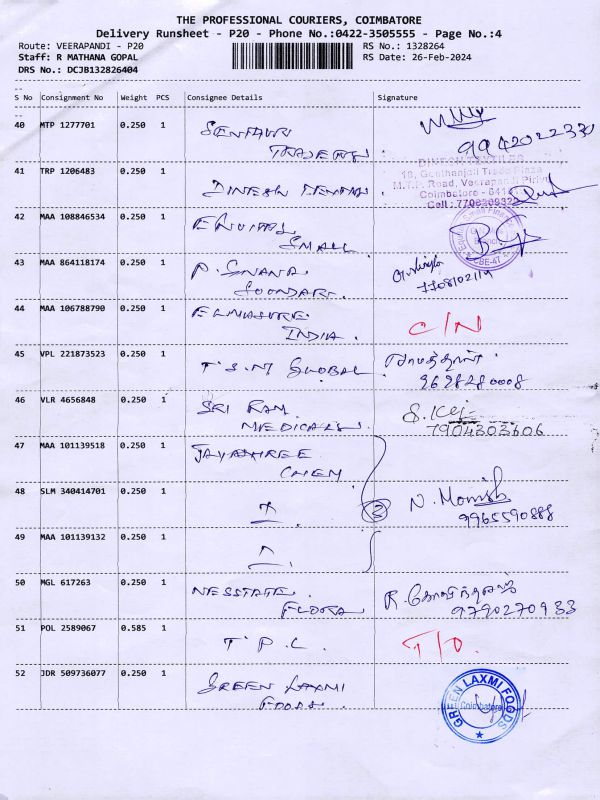 THE PROFESSIONAL COURIERS, COIMBATORE
Delivery Runsheet - P20 - Phone No.:0422-3505555 - Page No.:4
Route: VEERAPANDI - P20 RS No.: 1328264
Staff: R MATHANA GOPAL RS Date: 26-Feb-2024
DRS No.: DCJB132826404
S No Consignment No Weight PCS Consignee Details Signature
40 MTP 1277701 0.250 1
9942022330
41 TRP 1206483 0.250 1 DINESH
DINESH TEXTILES
M.T.P. Road, Veerapandi Pirivu
Coimbatore - 641
Cell : 7708209322
42 MAA 108846534 0.250 1
SMALL
43 MAA 864118174 0.250 1 P. GNANA
SOONDARI.
7708102119
44 MAA 106788790 0.250 1
INDIA. C/N
45 VPL 221873523 0.250 1 T.S.M GLOBAL
9698280008
46 VLR 4656848 0.250 1 SRI RAM
MEDICALS.
7904303606
47 MAA 101139518 0.250 1 JAYASHREE
CHEM
48 SLM 340414701 0.250 1 ③ N. Monish
9965590888
49 MAA 101139132 0.250 1
50 MGL 617263 0.250 1
FLORA
9790270933
51 POL 2589067 0.585 1 T.P.L. T/O.
52 JDR 509736077 0.250 1 GREEN LAXMI
FOODS.
GREEN LAXMI FOODS
Coimbatore